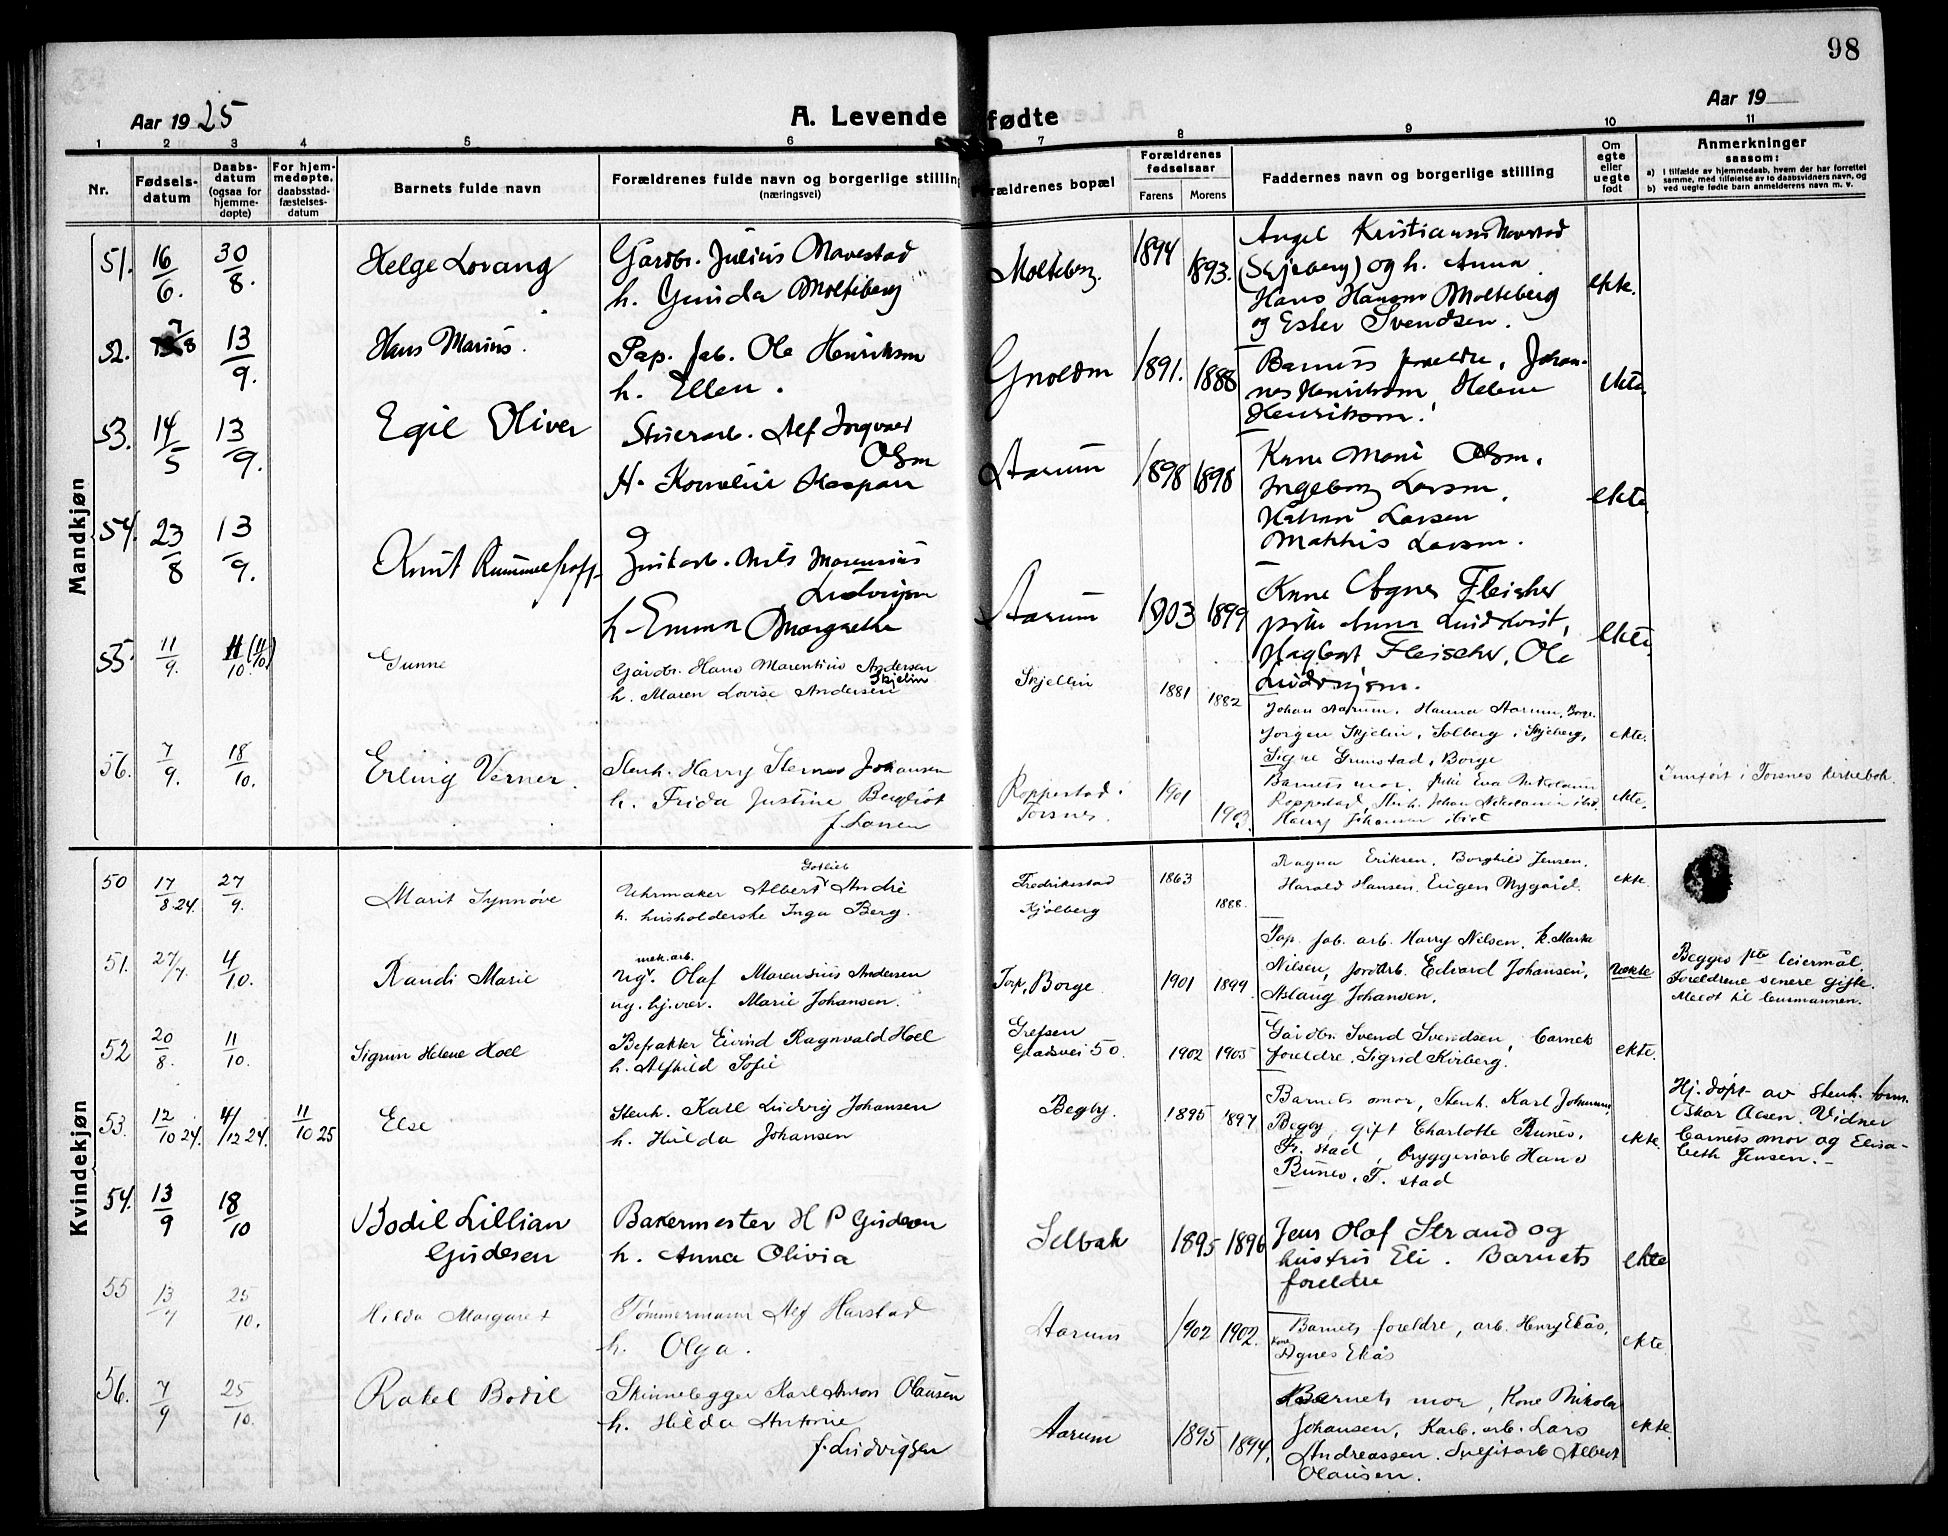 98
Aar 1925
A. Levende fødte
Aar 19
1 2 3 4 5 6 7 8 9 10 11
Nr.
Fødsels-
datum
Daabs-
datum
(ogsaa for
hjemme-
døpte)
For hjem-
medøpte.
daabsstad-
fæstelses-
datum
Barnets fulde navn
Forældrenes fulde navn og borgerlige stilling
(næringsvei)
Forældrenes bopæl
Forældrenes
fødselsaar
Farens Morens
Faddernes navn og borgerlige stilling
Om
egte
eller
uegte
født
Anmerkninger
saasom:
a) i tilfælde av hjemmedaab, hvem der har forrettet
samme, med tilføielse av to daabsvidners navn, og
b) ved uegte fødte barn anmelderens navn m. v.
Mandkjøn
51. 16/6. 30/8. Helge Lovang
Gårdbr. Julius Navestad
h. Gunda Molteberg
Molteberg. 1894 1893.
Angel Kristiansen Navestad
(Skjeberg) og h. Anna
Hans Hansen Molteberg
og Ester Svendsen.
ekte.
52. 7/8 13/9. Hans Marius.
Pap. fab. Ole Henriksen
h. Ellen.
1891. 1888
Barnets foreldre, Johan-
nes Henriksen, Helene
Henriksen.
ekte.
53. 14/5 13/9. Egil Oliver
Alf Ingvar
Olsen
H. Kornelia
Aarum 1898 1898
Kone Marie Olsen.
Ingeborg Larsen.
Larsen
Mathis Larsen.
ekte
54. 23/8 13/9. Knut Rummelhoff
Nils Marensius
Ludvigsen
h. Emma Margrethe
Aarum 1903 1899
Kone Agnes Fleischer
Anna Lindkvist,
Hagbart Fleischer, Ole
Ludvigsen.
ekte.
55. 11/9. 11/10. (11/10) Gunne
Gårdbr. Hans Marentius Andersen
Skjelin
h. Maren Lovise Andersen
Skjellin 1881 1882
Johan Aarum, Hanna Aarum, Borge.
Jørgen Skjelin, Solberg i Skjeberg,
Signe Grimstad, Borge
ekte.
56. 7/9. 18/10. Erling Verner.
Stenh. Harry Johansen
h. Frida Justine Bergliot
f. Larsen
Roppestad i
Torsnes. 1901 1903.
Barnets mor, frk. Eva Nikolaisen
Roppestad, Stenh. Johan Nikolaisen ibid.
Harry Johansen ibid
ekte.
Innført i Torsnes kirkebok.
Kvindekjøn
50 17/8.24. 27/9. Marit Synnøve
Gotlieb
Uhrmaker Albert André
h. husholderske Inga Berg.
Fredriksstad
Kjølberg 1863 1888.
Ragna Eriksen, Borghild Jensen,
Harald Hansen, Eugen Nygård.
ekte.
51. 27/7. 4/10. Randi Marie
mek. arb.
Ug. Olaf Marensius Andersen
ug. hj.vær. Marie Johansen.
Torp, Borge 1901 1899
Pap. fab. arb. Harry Nilsen, h. Marta
Nilsen, jordarb. Edvard Johansen,
Aslaug Johansen.
uekte
Begges 1ste leiermål.
Foreldrene senere gifte.
Meldt til lensmannen.
52 20/8. 11/10. Sigrun Helene Hoel
Befrakter Eivind Ragnvald Hoel
h. Alfhild Sofie
Grefsen
Gladsvei 50. 1902 1905
Gårdbr. Svend Svendsen, barnets
foreldre, Sigrid Kirberg.
ekte.
53. 12/10 24. 4/12 24. 11/10 25 Else
Stenh. Karl Ludvig Johansen
h. Hilda Johansen
Begby. 1895 1897
Barnets mor, Stenh. Karl Johansen
Begby, gift Charlotte Bunes,
Fr. stad, bryggeriarb Hans
Bunes, F. stad
ekte
Hj. døpt av Stenh. form.
Oskar Olsen. Vidner
barnets mor og Elisa-
beth Jensen.–
54. 13/9 18/10 Bodil Lillian
Gudesen
Bakermester H P Gudesen
h. Anna Olivia
Selbak 1895 1896
Jens Olaf Strand og
hustru Eli. Barnets
foreldre
ekte
55 13/7 25/10. Hilda Margaret
Tømmermann Alf Harstad
h. Olga.
Aarum 1902 1902.
Barnets foreldre, arb. Henry Ekås,
Kone
Agnes Ekås
ekte
56. 7/9 25/10. Rakel Bodil
Skinnelegger Karl Anton Olausen
h. Hilda Antonie
f. Ludvigsen
Aarum 1895 1894.
Barnets mor, Kone Nikolea
Johansen, Karb. arb. Lars
Andreassen. Sulfitarb Albert
Olausen.
ekte.